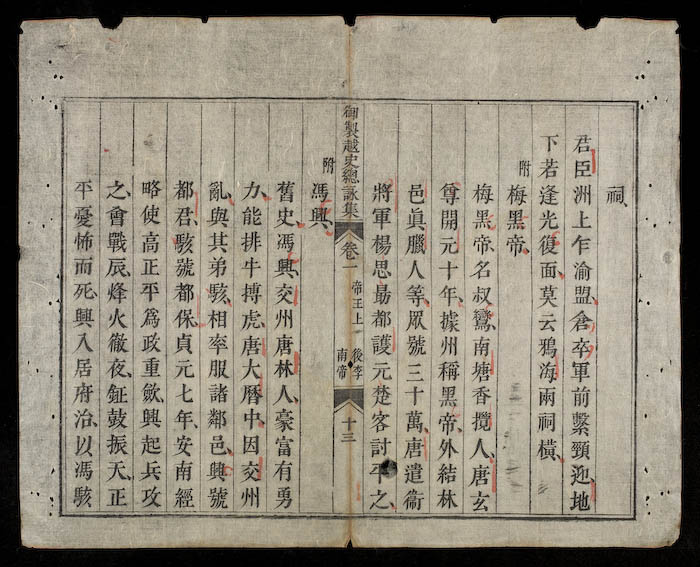 祠
君臣洲上乍渝盟倉卒軍前繫頸迎地
下若逢光復面莫云鴉海兩祠橫
附 梅黑帝
梅黑帝名叔鸞南塘香攬人唐玄
尊開元十年據州稱黑帝外結林
邑眞臘人等眾號三十萬唐遣衞
將軍楊思勗都護元楚客討平之
御製越史總詠集 卷一 帝王上 後李南帝 十三
附 馮興
舊史馮興交州唐林人豪富有勇
力能排牛搏虎唐大曆中因交州
亂與其弟駭相率服諸鄰邑興號
都君駭號都保貞元七年安南經
略使高正平爲政重歛興起兵攻
之會戰辰烽火徹夜鉦鼓振天正
平憂怖而死興入居府治以馮駭